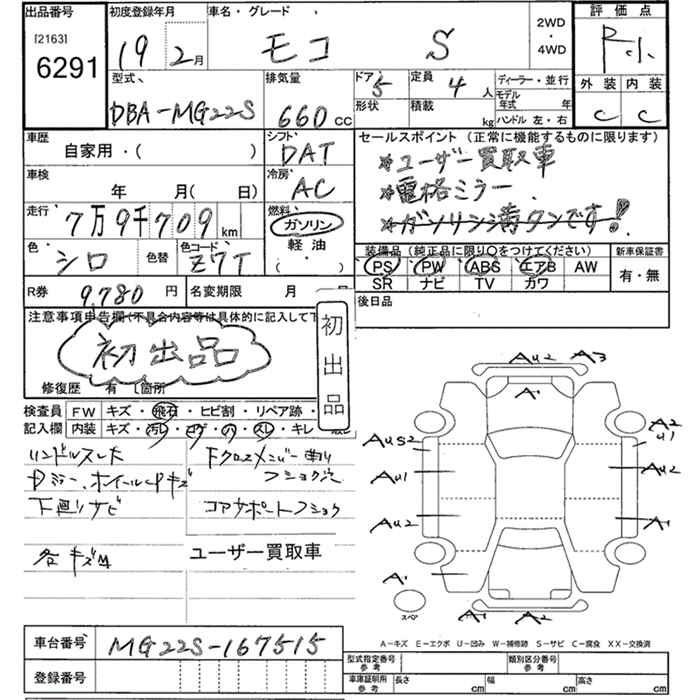 出品番号 初度登録年月 車名・グレード 2WD・4WD 評価点
[2163]
6291 19 2月 モコ S R小
型式 排気量 ドア 定員 ディーラー・並行 外装 内装
DBA-MG22S 660cc 5 4人 モデル年式 年 C C
形状 積載 kg ハンドル 左・右
車歴 シフト セールスポイント (正常に機能するものに限ります)
自家用・( ) DAT ユーザー買取車
車検 冷房 電格ミラー
年 月(日) AC ガソリン満タンです!
走行 燃料
7万9千709km ガソリン
色 色替 色コード 軽油 装備品 (純正品に限り○をつけてください) 新車保証書
シロ Z7T ( ) PS PW ABS エアB AW 有・無
SR ナビ TV カワ
R券 9,780円 名変期限 月 後日品
注意事項申告欄(不具合内容等は具体的に記入して下
初出品
初出品
修復歴 有 [箇所
検査員 FW キズ・飛石・ヒビ割・リペア跡・
記入欄 内装 キズ・汚レ・コゲ・穴・スレ・キレ
ハンドルスレ大
下廻りサビ コアサポートフショク
各キズ凹 ユーザー買取車
AU2 A3
A1
A2
U1
AUS2
AU1 AU2
AU2 A1
A1
A1 A2
スペア
A-キズ E-エクボ U-凹み W-補修跡 S-サビ C-腐食 XX-交換済
車台番号 MG22S-167515
型式指定番号 参考 類別区分番号 参考
登録番号 車庫証明用 参考 長さ cm 幅 cm 高さ cm